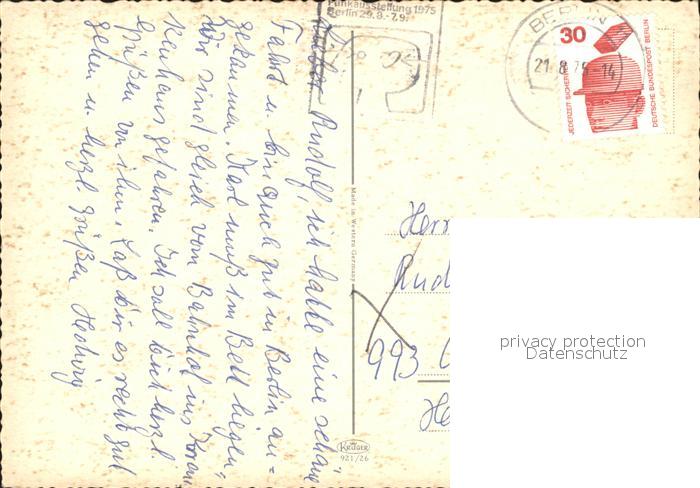 Funkausstellung 1975
Berlin 29.8.-7.9.
BERLIN
21.8.75-14
30
JEDERZEIT SICHERHEIT
DEUTSCHE BUNDESPOST BERLIN
Lieber Rudolf, ich hatte eine schöne
Fahrt u. bin auch gut in Berlin an=
gekommen. Karl muß im Bett liegen,
wir sind gleich vom Bahnhof ins Kran
kenhaus gefahren. Ich soll Euch herzl.
grüßen von ihm. Laß dir es recht gut
gehen u. herzl. Grüßen Hedwig
Made in Western Germany
Herr
Rud
993
He
KRÜGER
921/26
privacy protection
Datenschutz